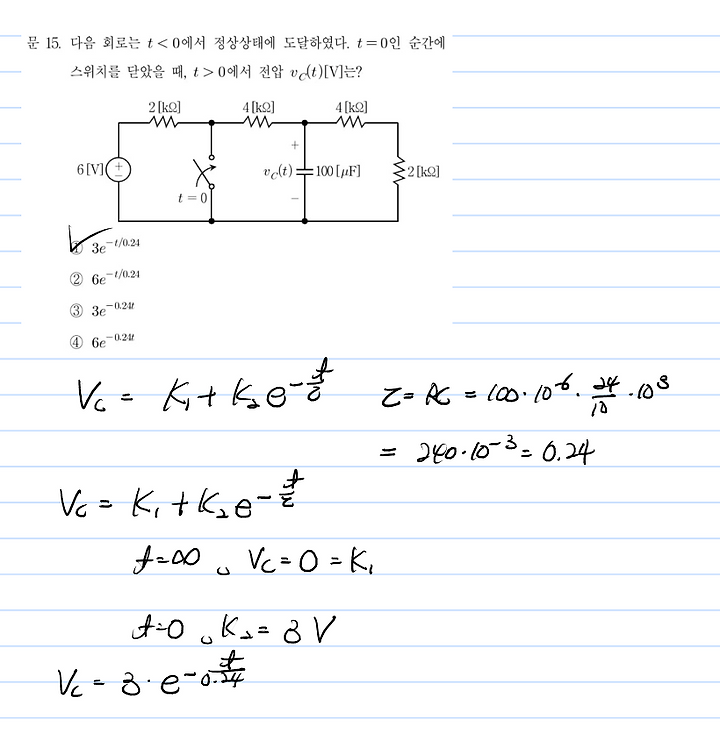 문 15. 다음 회로는 t < 0에서 정상상태에 도달하였다. t = 0인 순간에
스위치를 닫았을 때, t > 0에서 전압 v_C(t)[V]는?
2[kΩ] 4[kΩ] 4[kΩ]
+
6[V] + − v_C(t) 100[μF] 2[kΩ]
t = 0 −
① 3e^{-t/0.24}
② 6e^{-t/0.24}
③ 3e^{-0.24t}
④ 6e^{-0.24t}
Vc = K₁ + K₂e^{-t/τ} τ = RC = 100·10^{-6}·24/10·10^3
= 240·10^{-3} = 0.24
Vc = K₁ + K₂e^{-t/τ}
t=∞, Vc = 0 = K₁
t=0, K₂ = 3V
Vc = 3·e^{-t/0.24}